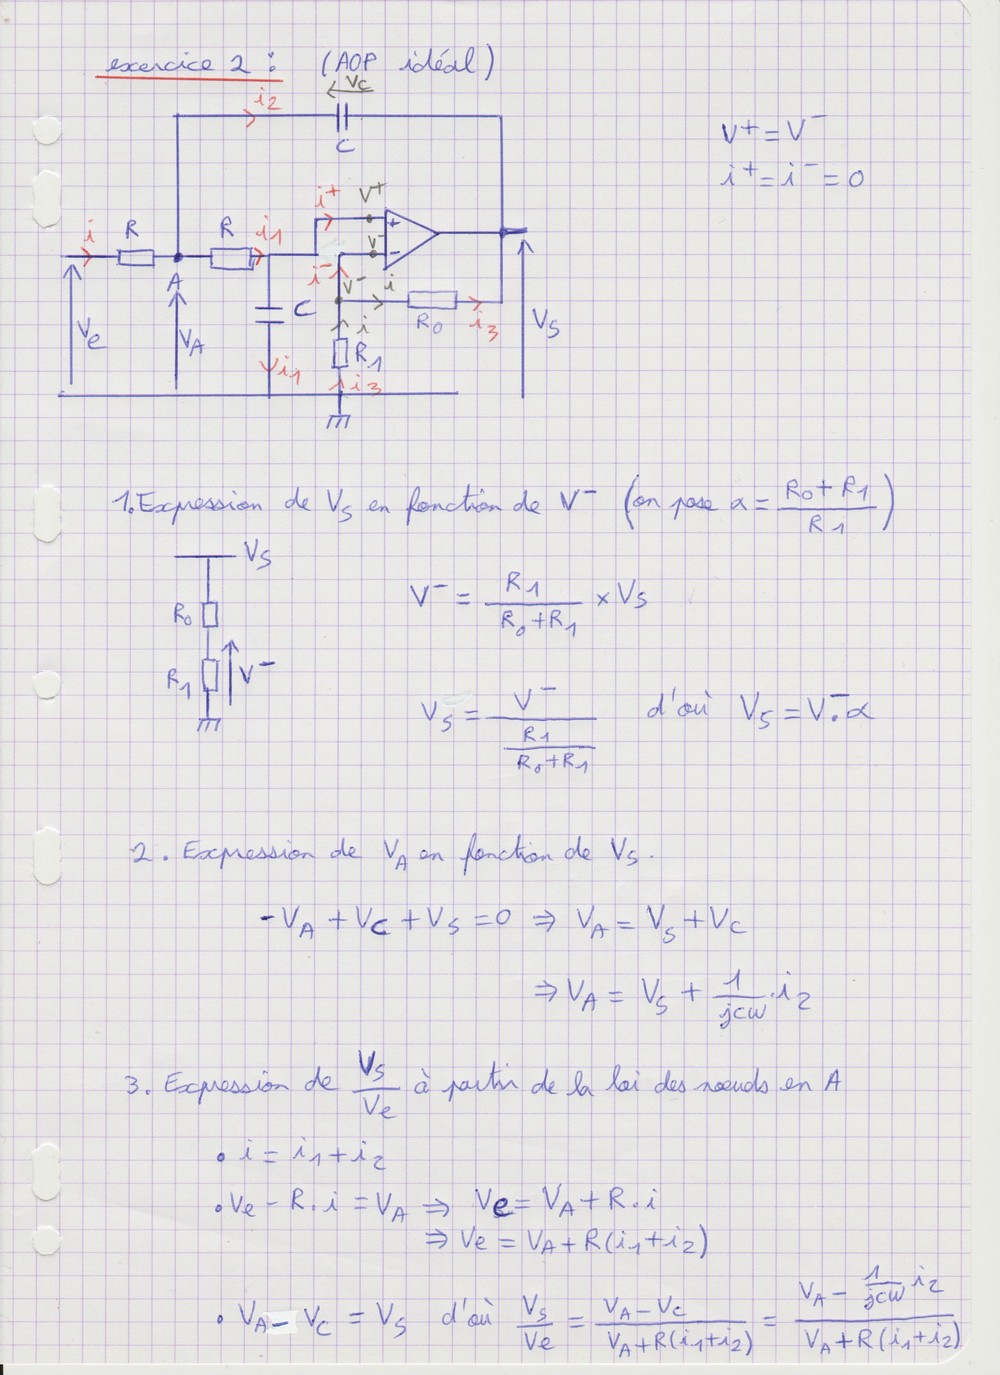 exercice 2 : (AOP idéal)
Vc
i2
C
V+ = V-
i+ = i- = 0
i R R i1 i+ V+
+
A
i- V-
-
V- i
C
R0 i3
Ve VA i R1 Vs
i1 i3
1. Expression de Vs en fonction de V- (on pose α = (R0 + R1)/R1)
Vs
R0
R1 V-
V- = R1/(R0+R1) × Vs
Vs = V-/(R1/(R0+R1)) d'où Vs = V-.α
2. Expression de VA en fonction de Vs.
-VA + Vc + Vs = 0 ⇒ VA = Vs + Vc
⇒ VA = Vs + 1/(jcω) . i2
3. Expression de Vs/Ve à partir de la loi des nœuds en A
• i = i1 + i2
• Ve - R.i = VA ⇒ Ve = VA + R.i
⇒ Ve = VA + R(i1+i2)
• VA - Vc = Vs d'où Vs/Ve = (VA - Vc)/(VA + R(i1+i2)) = (VA - 1/(jcω) i2)/(VA + R(i1+i2))